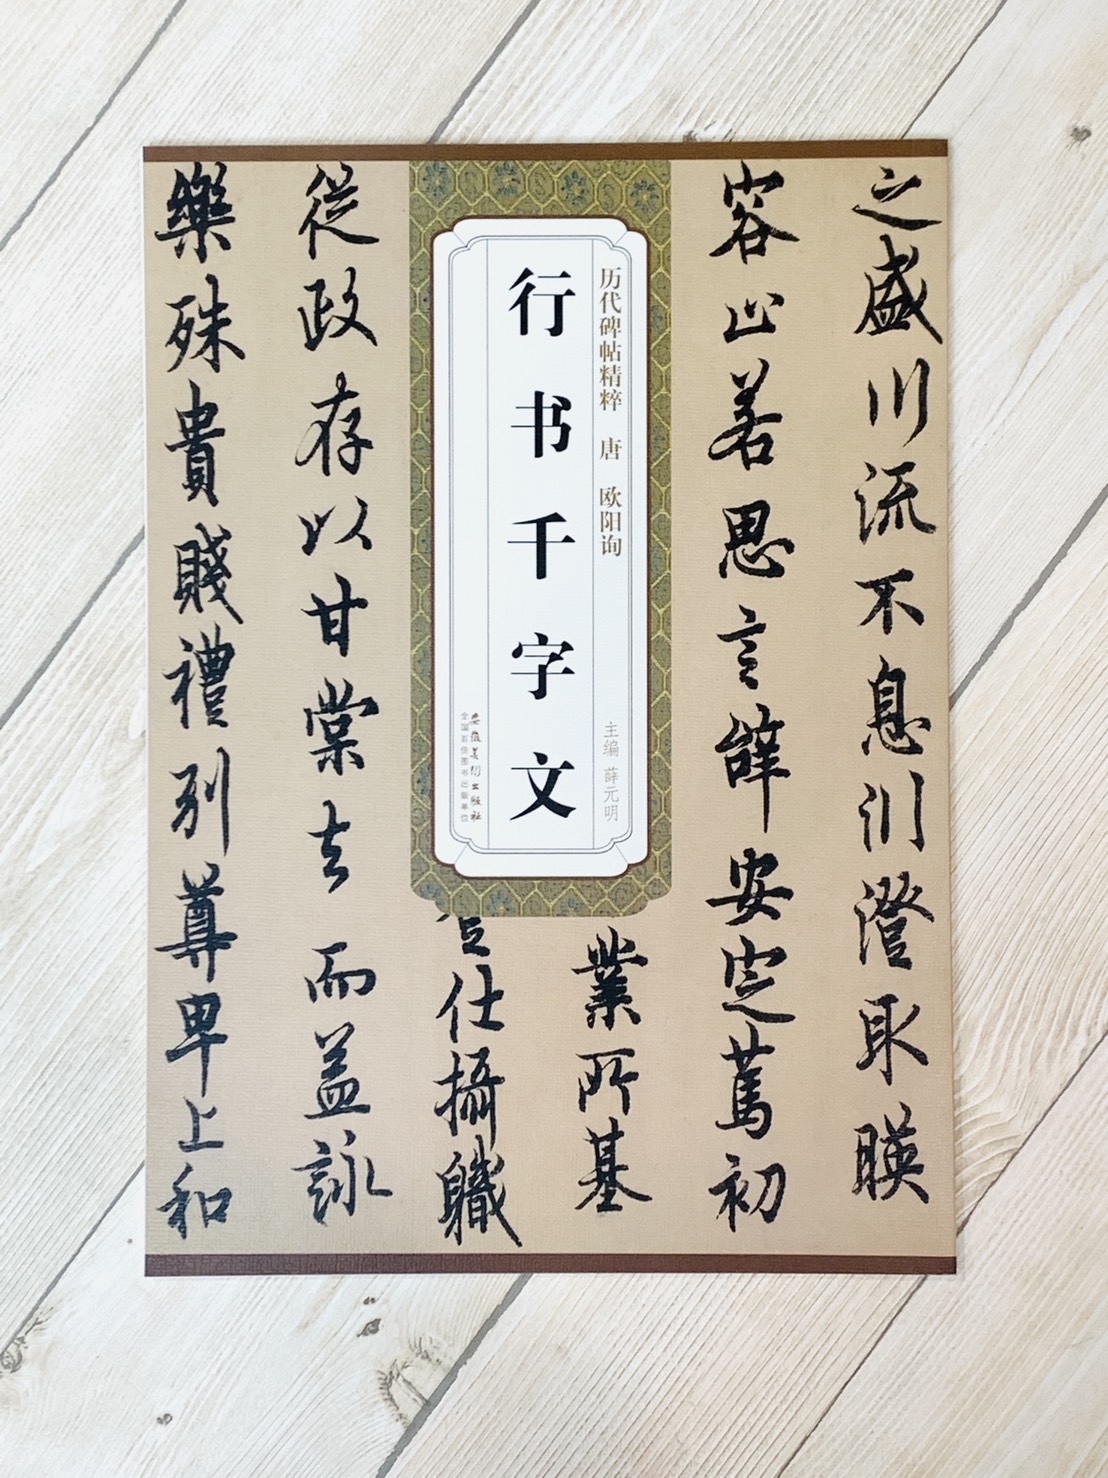 之盛川流不息渊澄取暎
容止若思言辭安定篤初
历代碑帖精粹 唐 欧阳询
主编 薛元明
行书千字文
安徽美术出版社
全国百佳图书出版单位
業所基
仕攝職
從政存以甘棠去而益詠
樂殊貴賤禮別尊卑上和